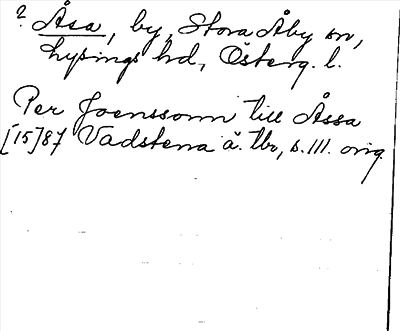 ? Åsa, by, Stora Åby sn,
Lysings hd, Österg. l.
Per Joenssonn till Åssa
[15]87 Vadstena ä. tbr, s. 111. orig.